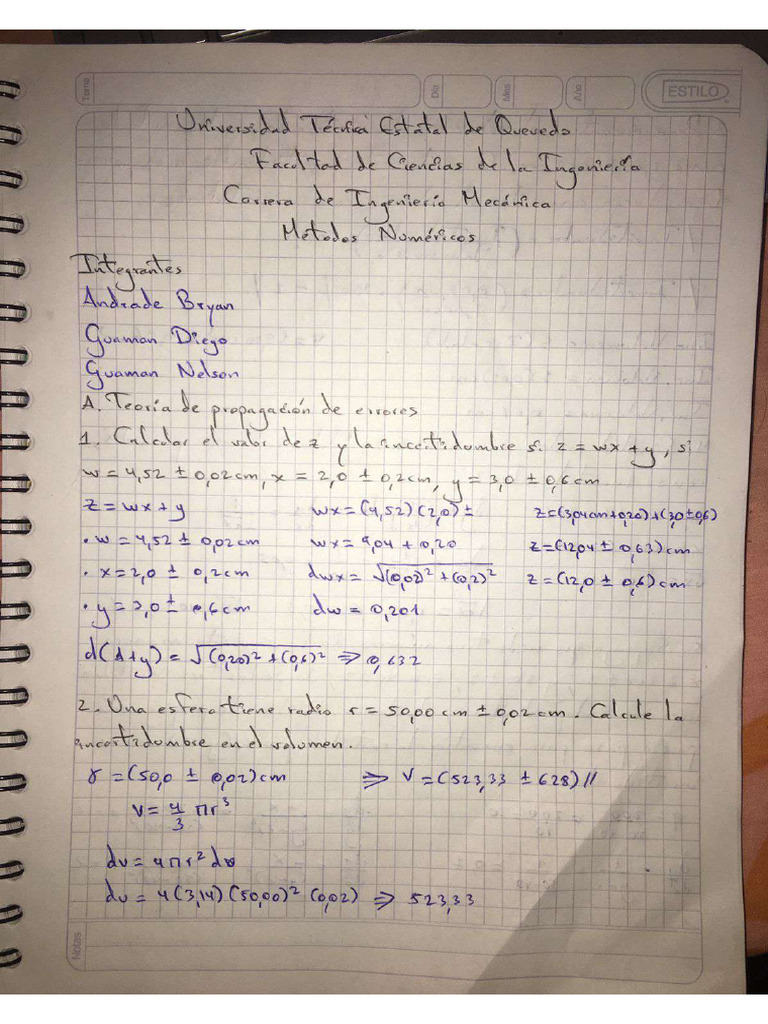 Tema
Día
Mes
Año
ESTILO
Universidad Técnica Estatal de Quevedo
Facultad de Ciencias de la Ingeniería
Carrera de Ingeniería Mecánica
Métodos Numéricos
Integrantes
Andrade Bryan
Guaman Diego
Guaman Nelson
A. Teoría de propagación de errores
1. Calcular el valor de z y la incertidumbre si z = wx + y, si
w = 4,52 ± 0,02 cm, x = 2,0 ± 0,2 cm, y = 3,0 ± 0,6 cm
z = wx + y
• w = 4,52 ± 0,02 cm
• x = 2,0 ± 0,2 cm
• y = 3,0 ± 0,6 cm
d(A+y) = √(0,20)² + (0,6)² ⇒ 0,632
wx = (4,52)(2,0) ±
wx = 9,04 + 0,20
dwx = √(0,02)² + (0,2)²
dw = 0,201
z = (3,04cm + 0,20) + (3,0 ± 0,6)
z = (12,04 ± 0,63) cm
z = (12,0 ± 0,6) cm
2. Una esfera tiene radio r = 50,00 cm ± 0,02 cm. Calcule la
incertidumbre en el volumen.
r = (50,0 ± 0,02) cm ⇒ V = (523,33 ± 628) //
V = 4/3 πr³
dv = 4πr² dr
dv = 4(3,14)(50,00)² (0,02) ⇒ 523,33
Notas